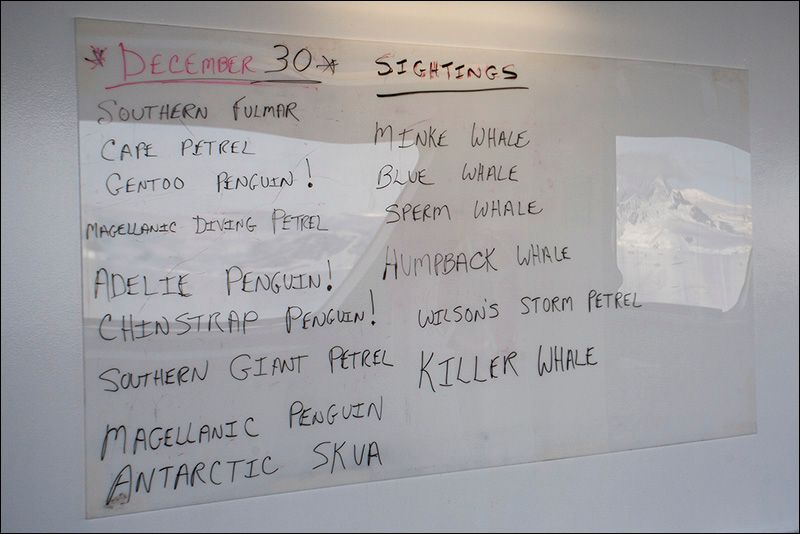 * DECEMBER 30 * SIGHTINGS
SOUTHERN FULMAR
CAPE PETREL
GENTOO PENGUIN!
MAGELLANIC DIVING PETREL
ADELIE PENGUIN!
CHINSTRAP PENGUIN!
SOUTHERN GIANT PETREL
MAGELLANIC PENGUIN
ANTARCTIC SKUA
MINKE WHALE
BLUE WHALE
SPERM WHALE
HUMPBACK WHALE
WILSON'S STORM PETREL
KILLER WHALE